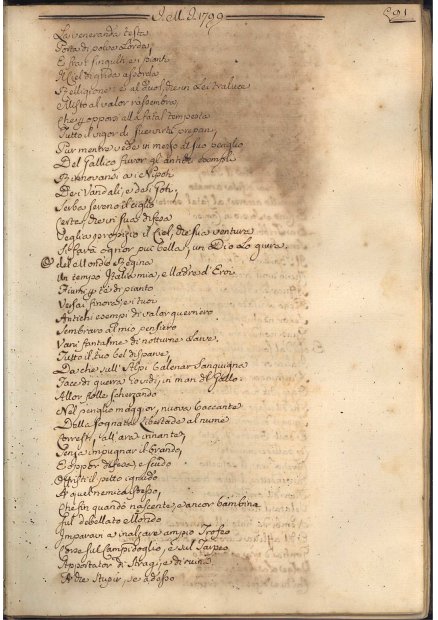 A. M. D. 1799
591
La veneranda testa
Sorta di polve lorda,
E fra i singulti e i pianti
Il Ciel di grida assorda
Religione è al duol, che in Lei traluce
E misto al valor rassembra,
Che s'oppone alla fatal tempesta
Tutto il vigor di sue virtù prepari,
Pur mentre vede in mezzo al suo periglio
Del Gallico furor gl'antichi esempli
Rinnovarsi ai Nipoti
De i Vandali, e de i Goti,
Serba sereno il ciglio
Certa, che in sua difesa
Veglia propizio il Ciel, che sua ventura
Si farà ognor più bella, un Dio lo giura.
O del Mondo Regina
Un tempo Italia mia, e Madre d'Eroi
Fiumi per te di pianto
Versai finora, e i tuoi
Antichi esempi di valor guerriero
Sembraro al mio pensiero
Vani fantasme di notturne Larve,
Tutto il tuo bel disparve,
Da che sull'Alpi balenar sanguigna
Face di guerra io vidi, in man del Gallo.
Allor folle scherzando
Nel periglio maggior, nuova Baccante
Della sognata Libertade al nume
Corresti, e all'ara innante,
Senza impugnar il brando,
E oppor difesa, e scudo
Offristi il petto ignudo
A quel nemico stesso,
Che fin quando nascente, e ancor bambina
Sul debellato Mondo
Imparavi a inalzare ampio Trofeo
Corse sul Campidoglio, e sul Tarpeo
Apportator di Stragi, e di ruine.
Ah che stupir, se adesso